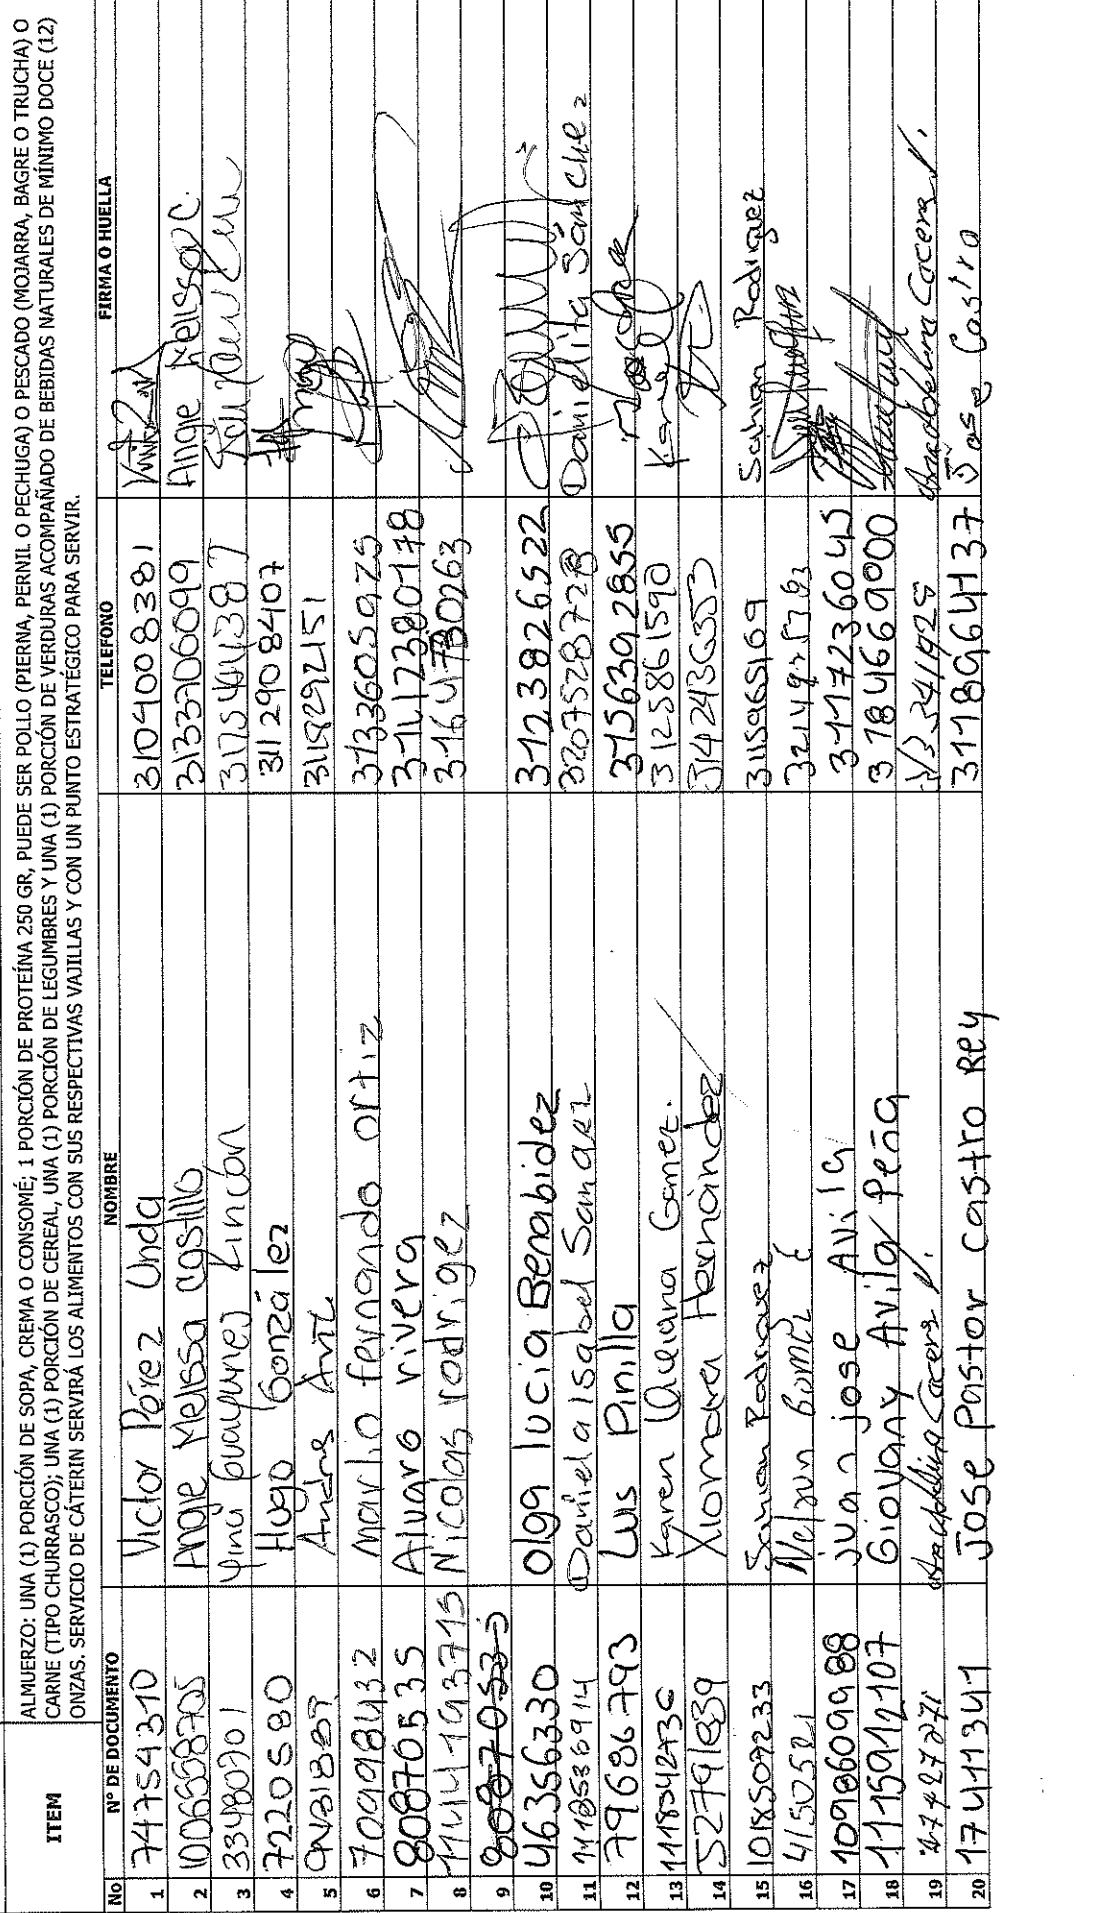 ALMUERZO: UNA (1) PORCIÓN DE SOPA, CREMA O CONSOMÉ; 1 PORCIÓN DE PROTEÍNA 250 GR, PUEDE SER POLLO (PIERNA, PERNIL O PECHUGA) O PESCADO (MOJARRA, BAGRE O TRUCHA) O
CARNE (TIPO CHURRASCO); UNA (1) PORCIÓN DE CEREAL, UNA (1) PORCIÓN DE LEGUMBRES Y UNA (1) PORCIÓN DE VERDURAS ACOMPAÑADO DE BEBIDAS NATURALES DE MÍNIMO DOCE (12)
ONZAS. SERVICIO DE CÁTERIN SERVIRÁ LOS ALIMENTOS CON SUS RESPECTIVAS VAJILLAS Y CON UN PUNTO ESTRATÉGICO PARA SERVIR.
ITEM
No N° DE DOCUMENTO NOMBRE TELEFONO FIRMA O HUELLA
1 74754310 Victor Pérez Unda 3104008381
2 1006558705 Angie Melissa Castillo 3133706099 Angie Melissa C.
3 33480701 Yina Guayunes Rincón 3175444387
4 7220580 Hugo González 3112908407
5 Andres 3118292151
6 70998432 Marlio fernando ortiz 3133605925
7 80876535 Alvaro rivera 31412380178
8 11441493713 Nicolas rodrigez
9
10 46356330 Olga lucia Benabidez 3123826522
11 1118536914 Daniela Isabel 3207528728 Danielita Sánchez
12 79686793 Luis Pinilla 3156392855
13 1118542736 Karen Gomez. 3125861590
14 52791839 Xiomara Hernández 3142436353
15 1018509233 Sahian Rodriguez 3115965169 Sahian Rodriguez
16 4150521 Nelson
17 1098609988 juan jose Avila 3117236045
18 1115912107 Giovany Avila Peña 3184669000
19
20 17411341 Jose Pastor castro Rey 3118964137 Jose Castro